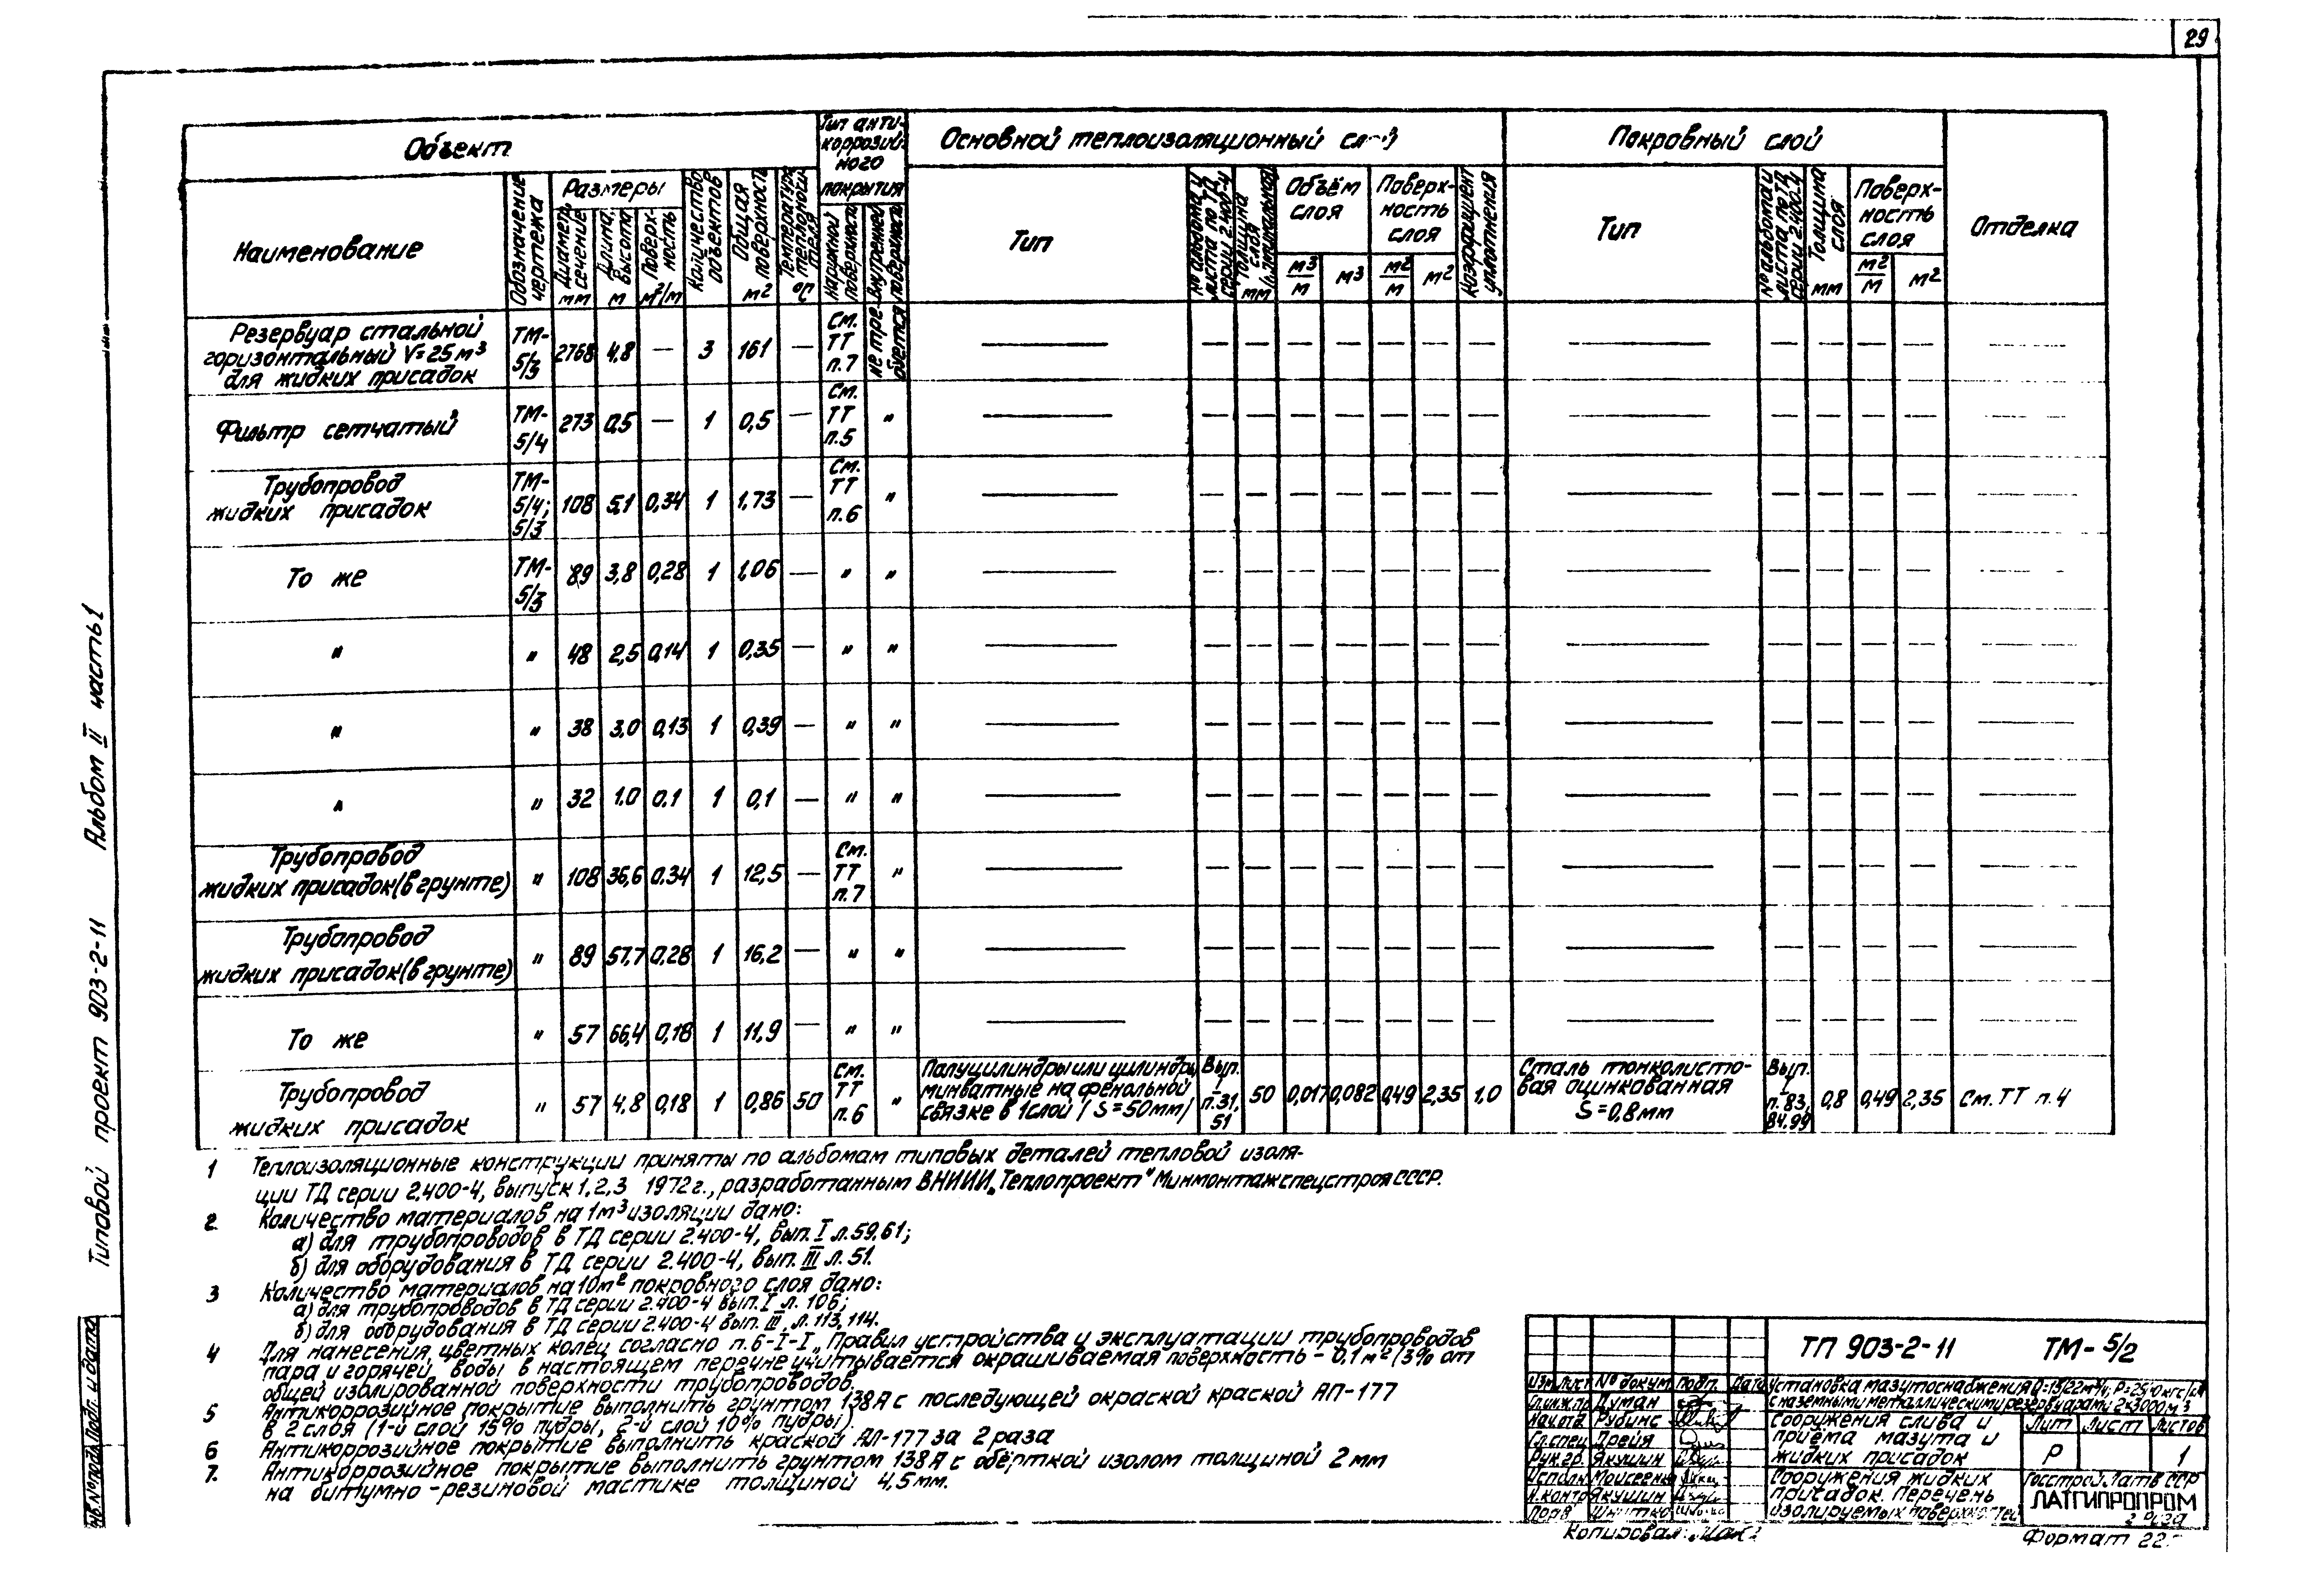 29
Объект
Тип анти-
коррозий-
ного
покрытия
Основной теплоизоляционный
Покровный слой
Наименование
Обозначение
чертежа
Размеры
Диаметр,
сечение
мм
Длина,
высота
м
Поверх-
ность
м²/м
Количество
объектов
Общая
поверхность
м²
Температура
теплоноси-
теля
°С
Наружной
поверхности
Внутренней
поверхности
Тип
№ альбома и
листа по ТД
серии 2.400-4
Толщина
слоя
мм
Объём
слоя
м³/м
м³
Поверх-
ность
слоя
м²/м
м²
Коэффициент
уплотнения
Тип
№ альбома и
листа по ТД
серии 2.400-4
Толщина
слоя
мм
Поверх-
ность
слоя
м²/м
м²
Отделка
Резервуар стальной
горизонтальный V=25м³
для жидких присадок
ТМ-
5/3
2768 4,8 — 3 161 —
См.
ТТ
п.7
не тре-
буется
Фильтр сетчатый
ТМ-
5/4
273 0,5 — 1 0,5 —
См.
ТТ
п.5
"
Трубопровод
жидких присадок
ТМ-
5/4;
5/3
108 5,1 0,34 1 1,73 —
См.
ТТ
п.6
"
То же
ТМ-
5/3
89 3,8 0,28 1 1,06 — " "
" " 48 2,5 0,14 1 0,35 — " "
" " 38 3,0 0,13 1 0,39 — " "
" " 32 1.0 0.1 1 0,1 — " "
Трубопровод
жидких присадок(в грунте)
" 108 36,6 0.34 1 12,5 —
См.
ТТ
п.7
"
Трубопровод
жидких присадок(в грунте)
" 89 57,7 0,28 1 16,2 — " "
То же " 57 66,4 0,18 1 11,9 — " "
Трубопровод
жидких присадок
" 57 4,8 0,18 1 0,86 50
См.
ТТ
п.6
"
Полуцилиндры или цилиндры
минватные на фенольной
связке в 1слой /S=50мм/
Вып.
I
п.31,
51
50 0,017 0,082 0,49 2,35 1,0
Сталь тонколисто-
вая оцинкованная
S=0,8мм
Вып.
I
п.83,
84,99
0,8 0,49 2,35 См.ТТ п.4
1 Теплоизоляционные конструкции приняты по альбомам типовых деталей тепловой изоля-
ции ТД серии 2.400-4, выпуск 1,2,3 1972г., разработанным ВНИИИ„Теплопроект" Минмонтажспецстроя СССР.
2 Количество материалов на 1м³ изоляции дано:
а) для трубопроводов в ТД серии 2.400-4, вып. I л.59,61;
б) для оборудования в ТД серии 2.400-4, вып. III л.51.
3 Количество материалов на 10м² покровного слоя дано:
а) для трубопроводов в ТД серии 2.400-4 вып. I л. 106;
б) для оборудования в ТД серии 2.400-4 вып. III, л.113,114.
4 Для нанесения цветных колец согласно п.6-I-I „Правил устройства и эксплуатации трубопроводов
пара и горячей воды в настоящем перечне учитывается окрашиваемая поверхность - 0,1м² /3% от
общей изолированной поверхности трубопроводов.
5 Антикоррозийное покрытие выполнить грунтом 138А с последующей окраской краской АЛ-177
в 2 слоя (1-й слой 15% пудры, 2-й слой 10% пудры).
6 Антикоррозийное покрытие выполнить краской АЛ-177 за 2 раза
7. Антикоррозийное покрытие выполнить грунтом 138А с обёрткой изолом толщиной 2мм
на битумно-резиновой мастике толщиной 4,5мм.
Типовой проект 903-2-11 Альбом II часть1
Подп. и дата
ТП 903-2-11 ТМ-5/2
Изм. Лист № докум. подп. Дата
Гл.инж.пр. Думан
Нач.отд. Рубинс
Гл.спец. Дрейя
Рук.гр. Якушин
Исполн. Моисеенк
Н.контр Якушин
Установка мазутоснабжения
с наземными металлическими резервуарами 2×3000м³
Сооружения слива и
приёма мазута и
жидких присадок
Лит Лист Листов
Р 1
Сооружения жидких
присадок. Перечень
изолируемых поверхностей
Госстрой Латв ССР
ЛАТГИПРОПРОМ
г Рига
Копировал:
Формат 22